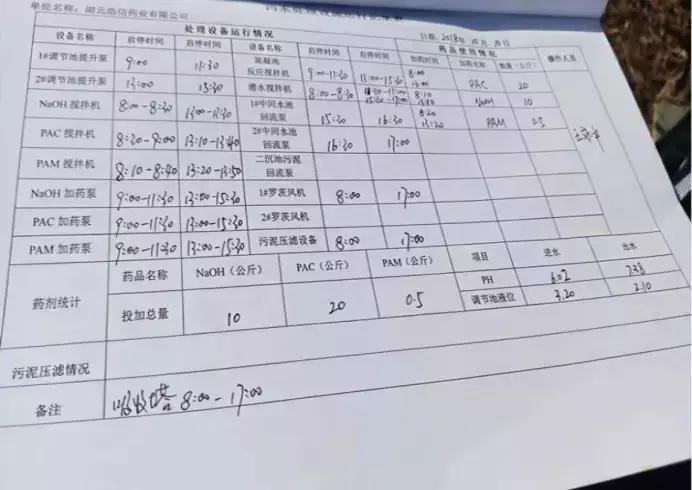 单位名称：湖北浩信药业有限公司
日期：2018年10月10日
处理设备运行情况 药品使用情况
设备名称 启停时间 启停时间 设备名称 启停时间 启停时间 加药时间 加药名称 数量（公斤） 操作人员
1#调节池提升泵 9:00 11:30 混凝池反应搅拌机 9:00-11:30 13:00-15:30 8:00 13:00 PAC 20
2#调节池提升泵 13:00 15:30 潜水搅拌机 8:00-8:30 8:10 13:10 NaOH 10
NaOH 搅拌机 8:00-8:30 13:00-13:30 1#中间水池回流泵 15:30 16:30 8:20 13:20 PAM 0.5
PAC 搅拌机 8:30-9:00 13:10-13:40 2#中间水池回流泵 16:30 17:00
PAM 搅拌机 8:10-8:40 13:20-13:50 二沉池污泥回流泵
NaOH 加药泵 9:00-11:30 13:00-15:30 1#罗茨风机 8:00 17:00
PAC 加药泵 9:00-11:30 13:00-15:30 2#罗茨风机
PAM 加药泵 9:00-11:30 13:00-15:30 污泥压滤设备 8:00 17:00
药剂统计 药品名称 NaOH（公斤） PAC（公斤） PAM（公斤） 项目 进水 出水
PH 6.02 7.38
投加总量 10 20 0.5 调节池液位 3.20 2.10
污泥压滤情况
备注 吸收塔 8:00-17:00